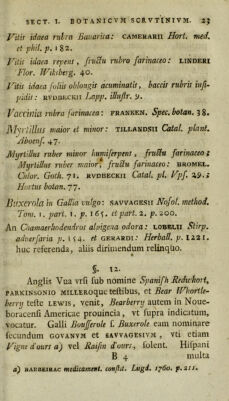 SECT. I. BOTANICVM SCRVTINIVM. 23
Vitis idaea rubra Bauarica: CAMERARII Hort. med.
et phil. p. 182.
Vitis idaea repens, fructu rubro farinaceo: LINDERI
Flor. Wiksberg. 40.
Vitis idaea foliis oblongis acuminatis, baccis rubris insi-
pidis: RVDBECKII Lapp. illustr. 9.
Vaccinia rubra farinacea: FRANKEN. Spec. botan. 38.
Myrtillus maior et minor: TILLANDSII Catal. plant.
Aboens. 47.
Myrtillus ruber minor humiserpens, fructu farinaceo:
Myrtillus ruber maior, fructu farinaceo: BROMEL.
Chlor. Goth. 71. RVDBECKII Catal. pl. Vps. 29.:
Hortus botan. 77.
Buxerola in Gallia vulgo: SAVVAGESII Nosol. method.
Tom. 1. part. 1. p. 165. et part. 2. p. 200.
An Chamaerhodendros alpigena odora: LOBELII Stirp.
adversaria p. 154. et GERARDI: Herball. p. 1221.
huc referenda, aliis dirimendum relinquo.
§. 12.
Anglis Vua vrsi sub nomine Spanish Reduhort,
PARKINSONIO MILLEROQVE testibus, et Bear Whortle-
berry teste LEWIS, venit, Bearberry autem in Noue-
boracensi Americae prouincia, vt supra indicatum,
vocatur. Galli Bousserole s. Buxerole eam nominare
secundum GOVANVM et SAVVAGESIVM, vti etiam
Vigne d'ours a) vel Raisin d'ours, solent. Hispani
B 4 multa
a) BARBEIRAC medicament. constit. Lugd. 1760. p. 211.